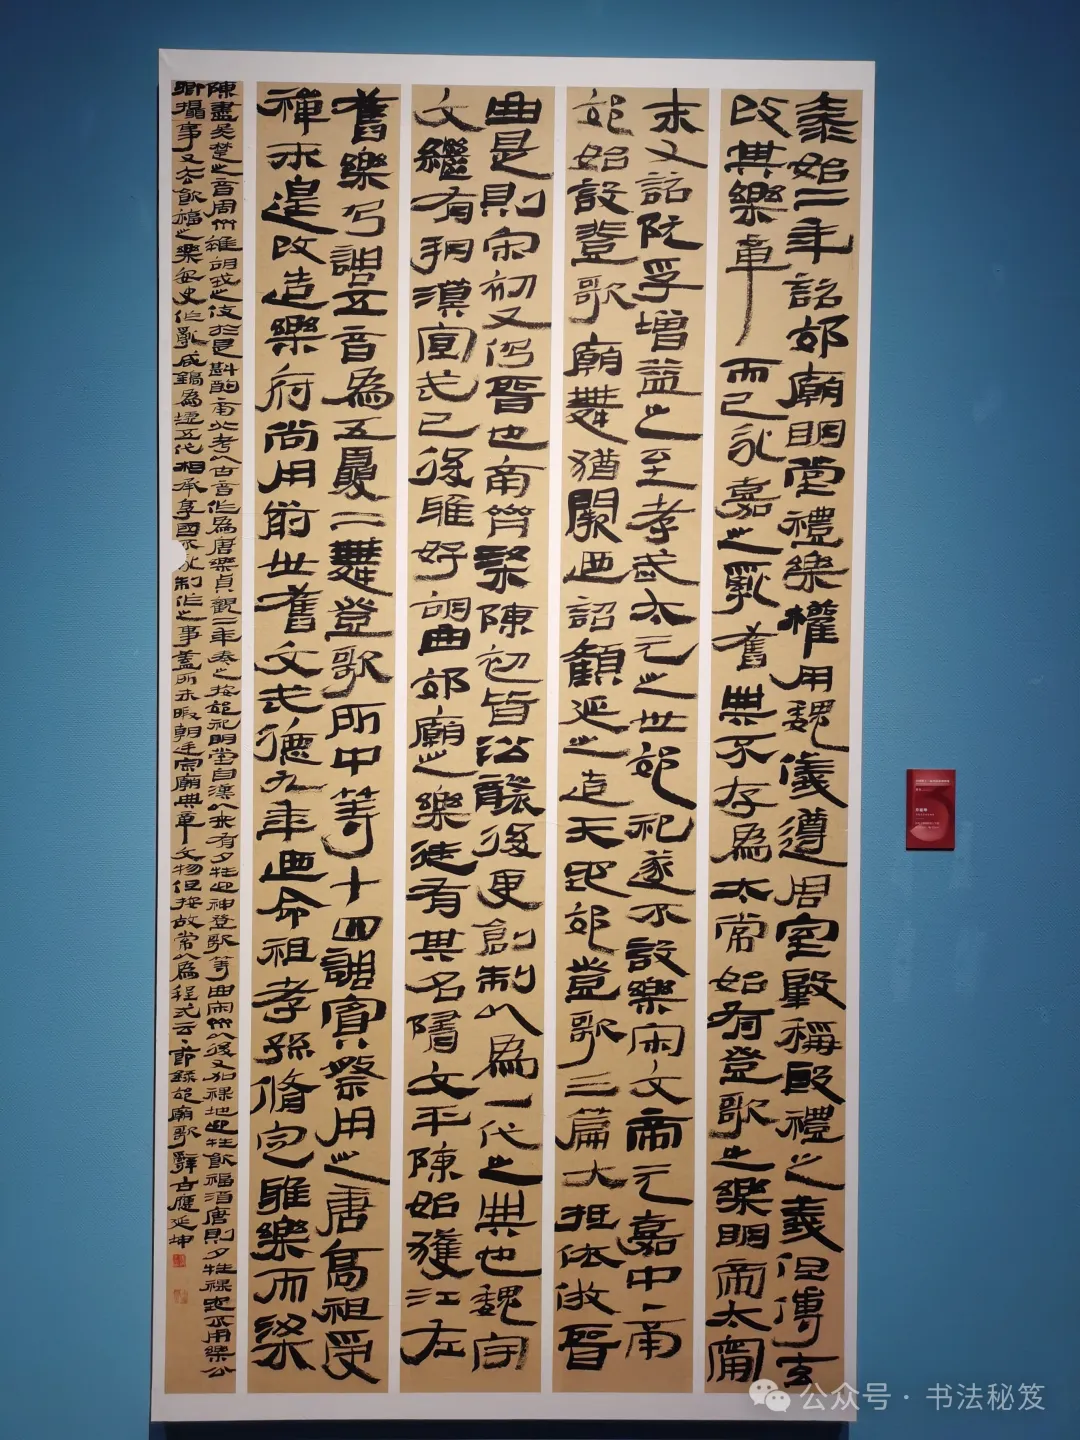 泰始二年詔郊廟明堂禮樂權用魏儀遵周室肇稱殷禮之義但傅玄
改其樂章而已永嘉之亂舊典不存爲太常始有登歌之樂明帝太甯
末又詔阮孚增益之至孝武太元之世郊祀遂不設樂宋文帝元嘉中南
郊始設登歌廟舞猶闕迺詔顏延之造天地郊登歌三篇大抵依倣晉
曲是則宋初又仍晉也南齊梁陳初皆沿襲後更創制以爲一代之典也魏宇
文繼有朔漠宣武已後雅好胡曲郊廟之樂徒有其名隋文平陳始獲江左
舊樂乃調五音爲五夏二舞登歌房中等十四調賓祭用之唐高祖受
禪未遑改造樂府尚用前世舊文武德九年迺命祖孝孫脩定雅樂而梁
陳盡吳楚之音周齊雜胡戎之伎於是斟酌南北考以古音作爲唐樂貞觀二年奏之按郊祀明堂自漢以來有夕牲迎神登歌等曲宋齊以後又加祼地迎牲飲福酒唐則夕牲祼地不用樂公
卿攝事又去飲福之樂安史作亂咸鎬爲墟五代相承享國不永制作之事蓋所未暇朝廷宗廟典章文物但按故常以爲程式云 節錄郊廟歌辭 古應延坤
公众号·书法秘笈